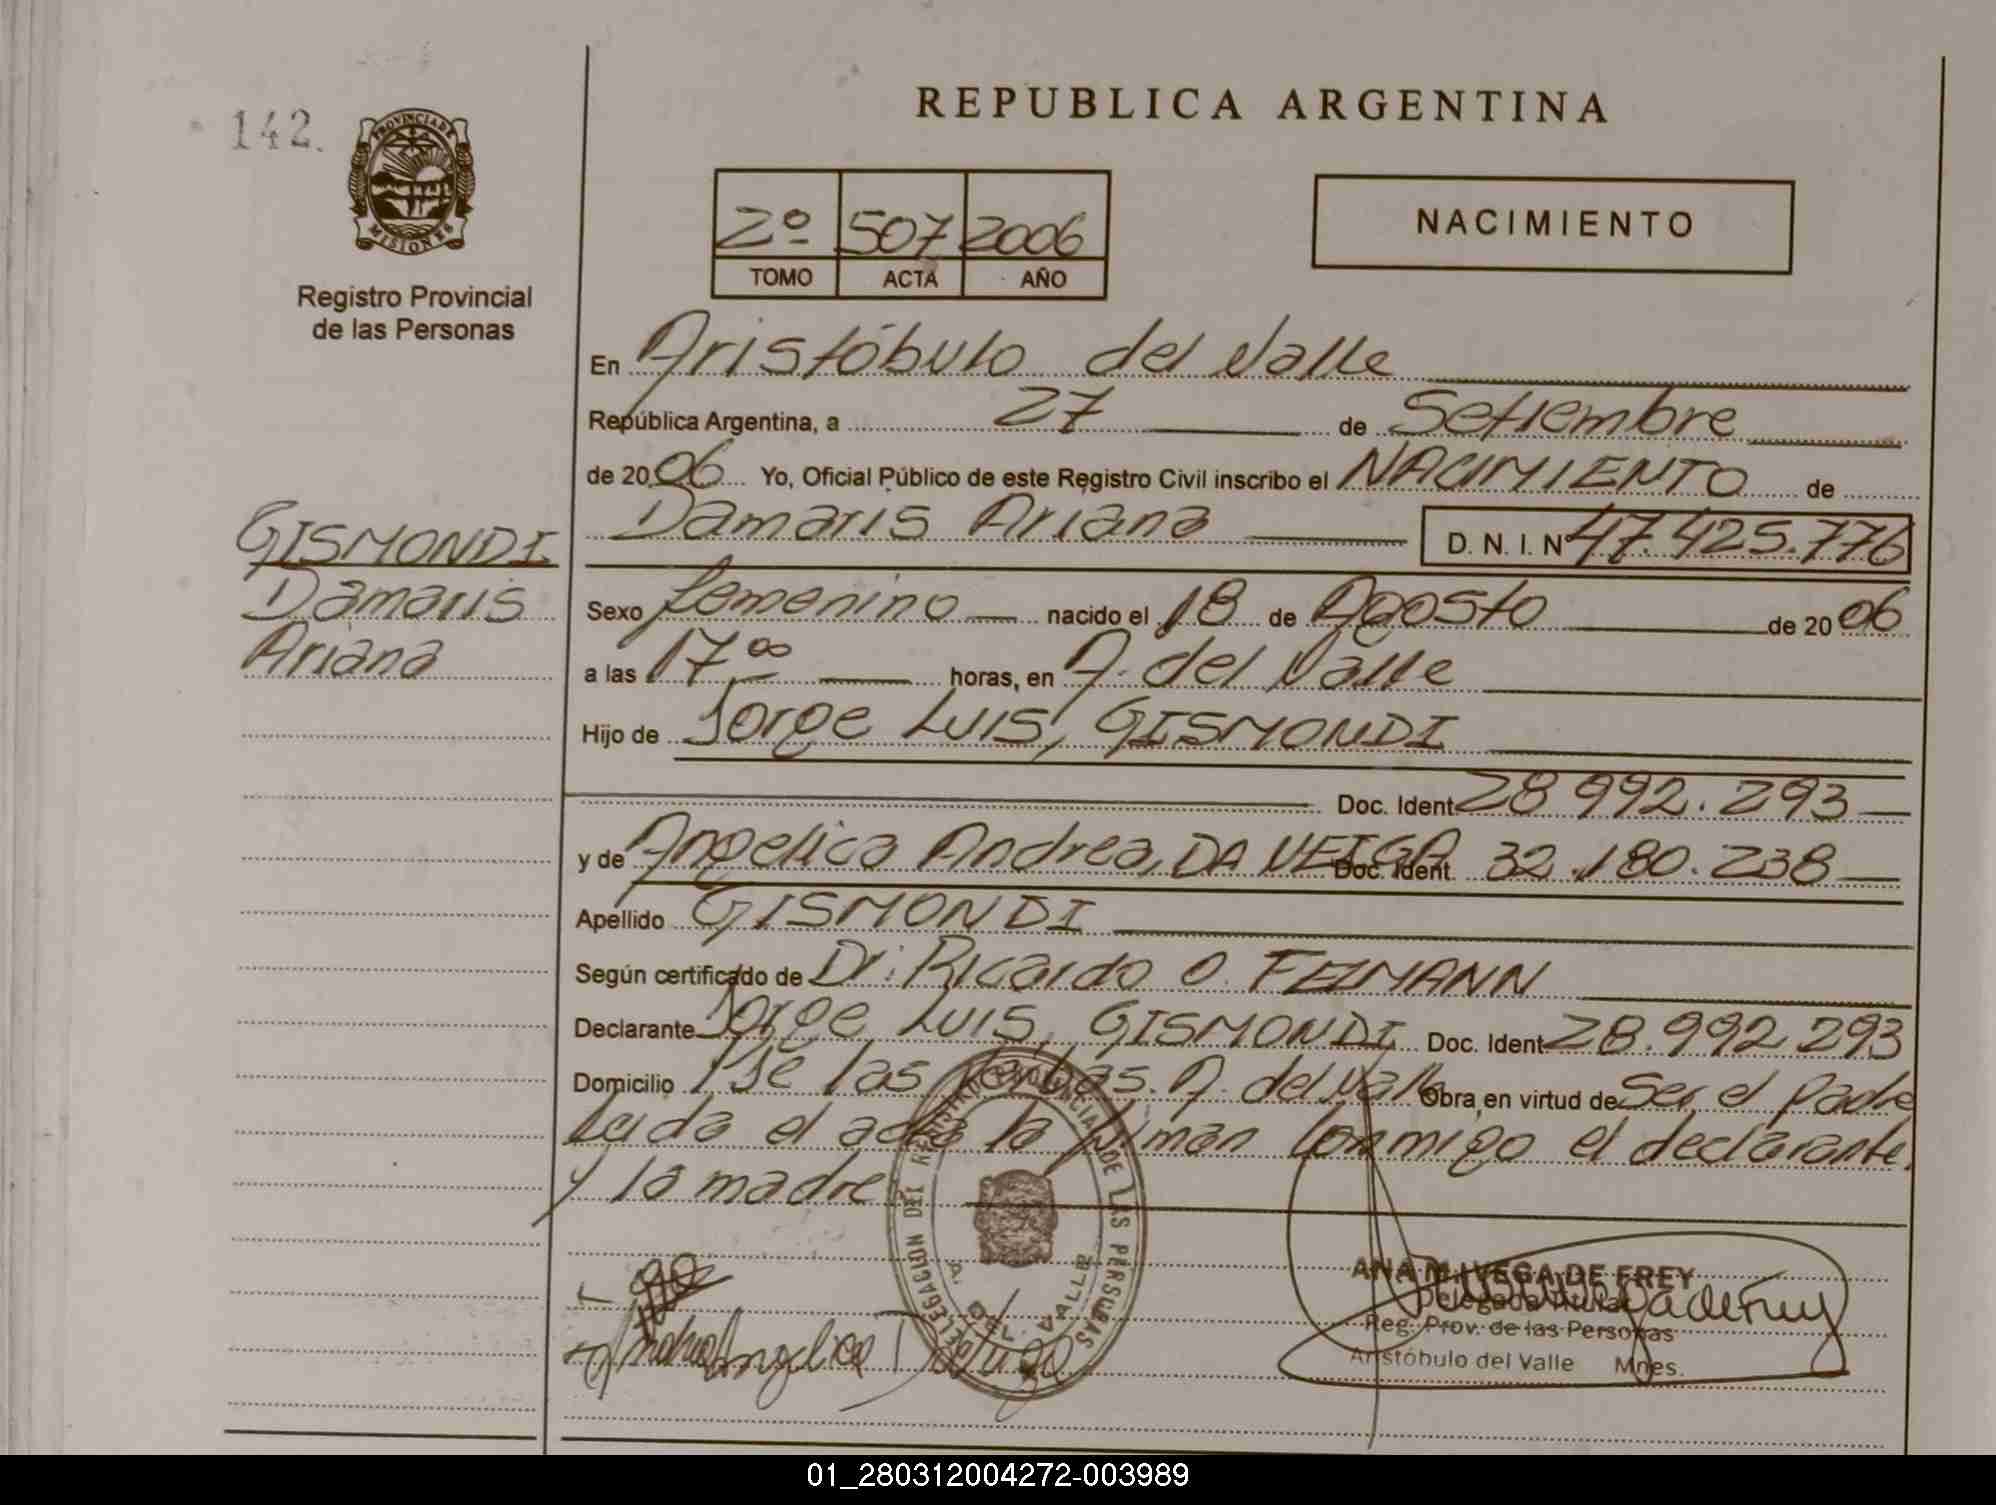 142.
PROVINCIA DE
MISIONES
Registro Provincial
de las Personas
GISMONDI
Damaris
Ariana
REPUBLICA ARGENTINA
2º 507 2006
TOMO ACTA AÑO
NACIMIENTO
En Aristóbulo del Valle
República Argentina, a 27 de Setiembre
de 2006 Yo, Oficial Público de este Registro Civil inscribo el NACIMIENTO de
Damaris Ariana D. N. I. Nº 47.425.776
Sexo femenino nacido el 18 de Agosto de 2006
a las 17 ºº horas, en A. del Valle
Hijo de Jorge Luis, GISMONDI
Doc. Ident. 28.992.293
y de Angelica Andrea, DA VEIGA Doc. Ident. 32.180.238
Apellido GISMONDI
Según certificado de Dr. Ricardo O.
Declarante Jorge Luis, GISMONDI Doc. Ident. 28.992.293
Domicilio las A. del Valle Obra en virtud de Ser el padre
Leida el acta la firman conmigo el declarante
y la madre
DELEGACION DEL REGISTRO PROVINCIAL DE LAS PERSONAS
A. DEL VALLE
ANA M. VEGA DE FREY
Delegada Titular
Reg. Prov. de las Personas
Aristóbulo del Valle Mnes.
01_280312004272-003989